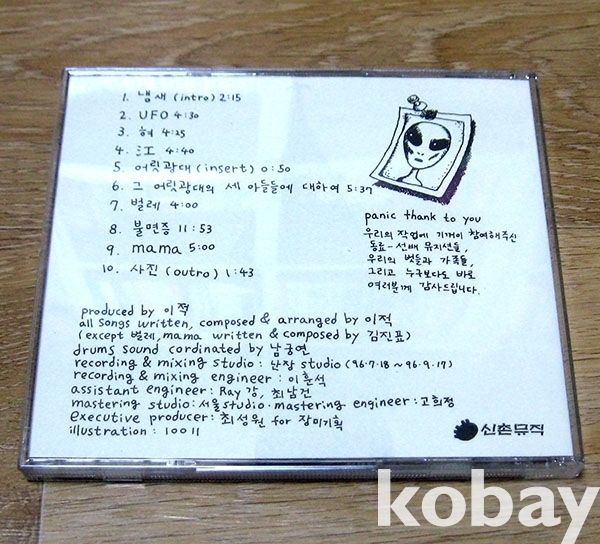 1. 냄새 (intro) 2:15
2. UFO 4:30
3. 혀 4:25
4. 강 4:40
5. 어릿광대 (insert) 0:50
6. 그 어릿광대의 세 아들들에 대하여 5:37
7. 벌레 4:00
8. 불면증 11:53
9. mama 5:00
10. 사진 (outro) 1:43
panic thank to you
우리의 작업에 기꺼이 참여해주신
동료-선배 뮤지션들,
우리의 벗들과 가족들,
그리고 누구보다도 바로
여러분께 감사드립니다.
produced by 이적
all songs written, composed & arranged by 이적
(except 벌레, mama written & composed by 김진표)
drums sound cordinated by 남궁연
recording & mixing studio : 난장 studio (96.7.18 ~ 96.9.17)
recording & mixing engineer : 이훈석
assistant engineer : Ray 강, 최남건
mastering studio : 서울 studio · mastering engineer : 고희정
executive producer : 최성원 for 장미기획
illustration : 10011
신촌뮤직
kobay